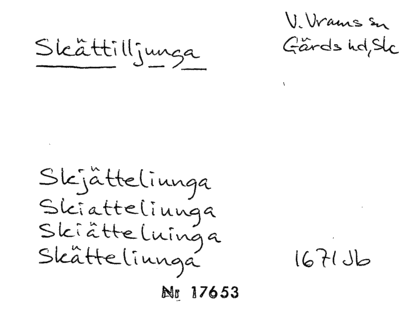 Skättilljunga
V. Vrams sn
Gärds hd, Sk
Skjätteliunga
Skiatteliunga
Skiätteluinga
Skätteliunga 1671 Jb
Nr 17653